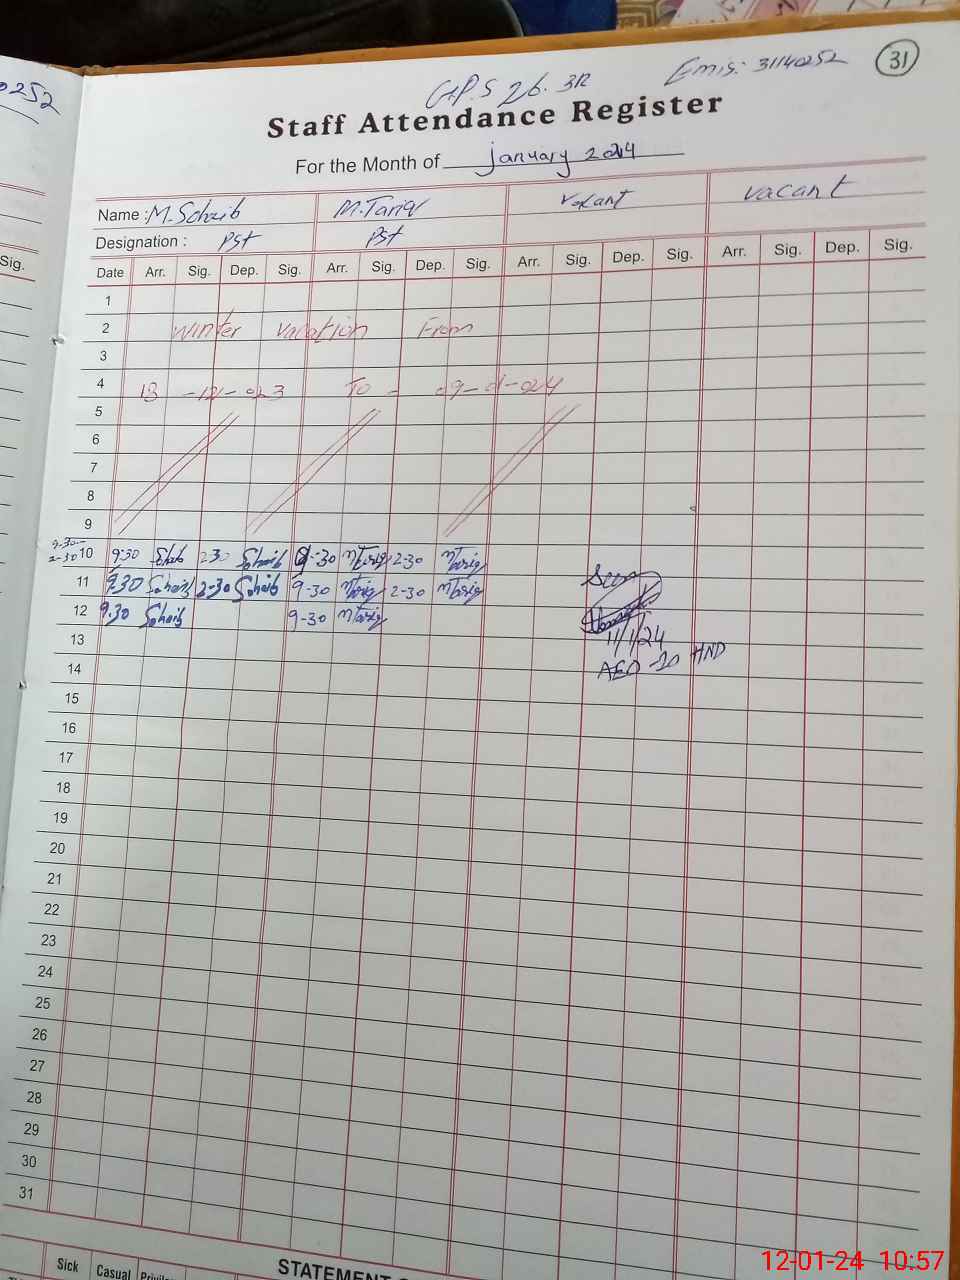 0252
Sig.
31
G.P.S 26. 3R Emis: 31140252
Staff Attendance Register
For the Month of january 2024
Name : M. Sohaib M. Tariq vacant vacant
Designation : Pst Pst
Date Arr. Sig. Dep. Sig. Arr. Sig. Dep. Sig. Arr. Sig. Dep. Sig. Arr. Sig. Dep. Sig.
1
2 winter vacation From
3
4 18 -12- 023 To - 09-01-024
5
6
7
8
9
9-30- 2-30 10 9:30 Sohaib 2-30 Sohaib 9-30 MTariq 2-30 MTariq
11 9:30 Sohaib 2-30 Sohaib 9-30 MTariq 2-30 MTariq
Seen
12 9:30 Sohaib 9-30 MTariq
11/1/24
13
AEO -10 HND
14
15
16
17
18
19
20
21
22
23
24
25
26
27
28
29
30
31
Sick Casual
STATEMENT
12-01-24 10:57